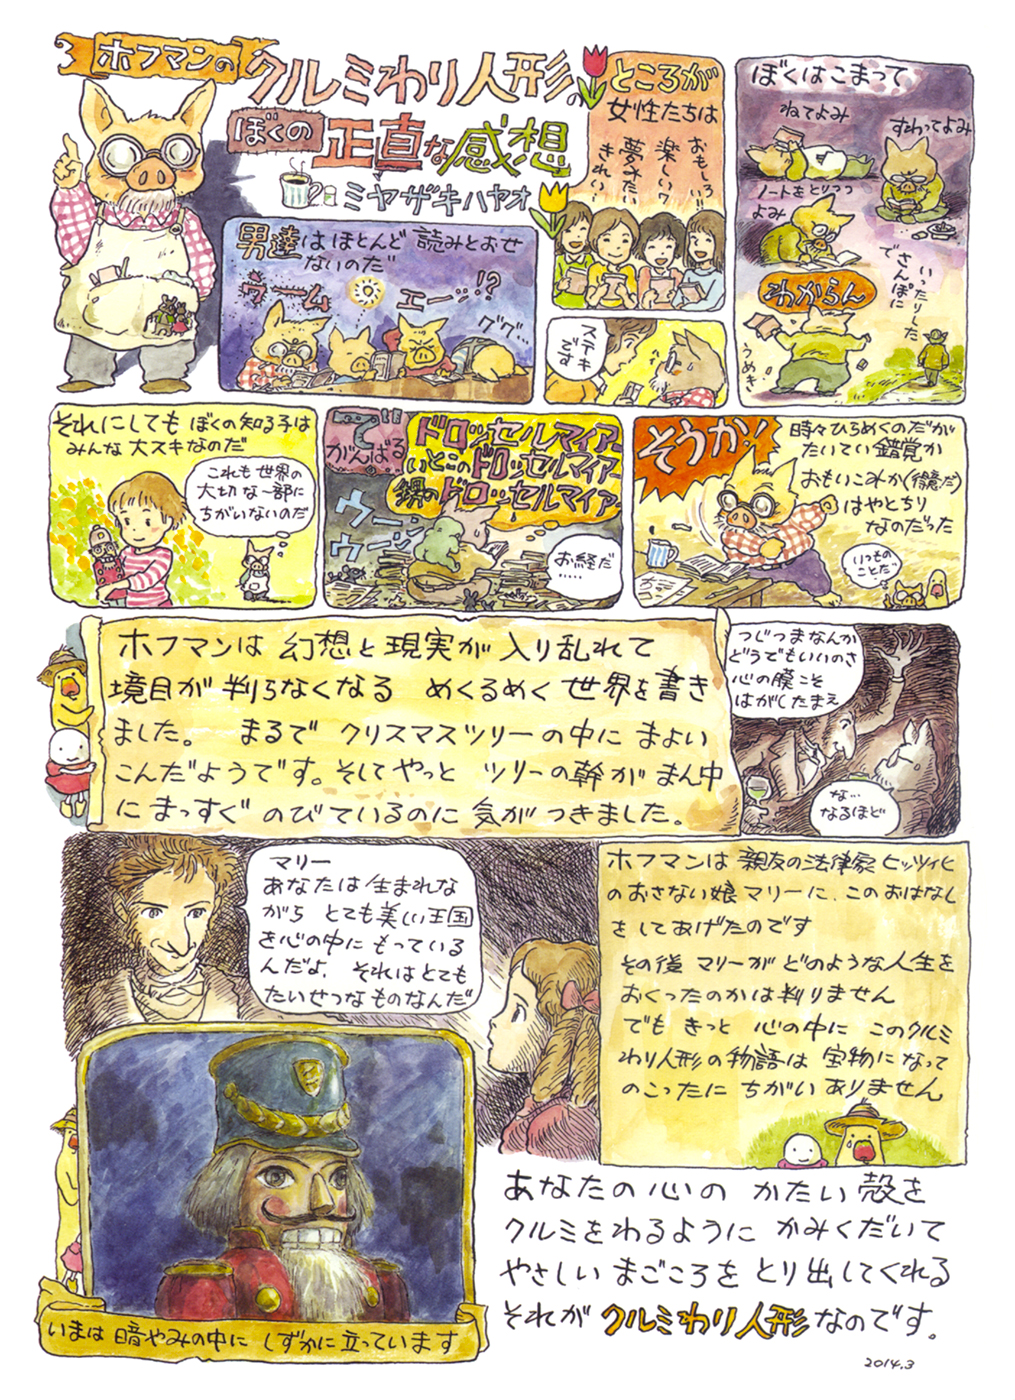 ホフマンの
クルミわり人形の
ぼくの
正直な感想
ミヤザキハヤオ
男達はほとんど 読みとおせ
ないのだ
ウーム
エーッ!?
グググ…
ところが
女性たちは
おもしろい!!
楽しい♡
夢みたい
きれい…
ステキ
です
ぼくはこまって
ねてよみ
すわってよみ
ノートをとりつつ
よみ
わからん
うめき
いったりした
さんぽに
でき
それにしても ぼくの知る子は
みんな 大スキなのだ
これも世界の
大切な一部に
ちがいないのだ
で
がんばる
ドロッセルマイアー
いとこのドロッセルマイアー
甥のドロッセルマイアー
ウーン
ウーン
お経だ
……
そうか!
時々ひらめくのだが
たいてい錯覚か
おもいこみか(得意だ)
はやとちり
なのだった
いつもの
ことだ
ホフマンは 幻想と現実が 入り乱れて
境目が判らなくなる めくるめく世界を書き
ました。 まるで クリスマスツリーの中に まよい
こんだようです。そしてやっと ツリーの幹が まん中
に まっすぐ のびているのに 気が つきました。
つじつまなんか
どうでもいいのさ
心の膜こそ
はがしたまえ
な…
なるほど
マリー
あなたは 生まれな
がら とても美しい王国
を心の中に もっている
んだよ. それはとても
たいせつなものなんだ
ホフマンは 親友の法律家 ヒッツィヒ
のおさない娘マリーに、このおはなし
をしてあげたのです
その後 マリーが どのような人生を
おくったのかは判りません
でも きっと 心の中に このクルミ
わり人形の物語は 宝物になって
のこったに ちがいありません
いまは 暗やみの中に しずかに立っています
あなたの 心の かたい 殻を
クルミをわるように かみくだいて
やさしい まごころを とり出してくれる
それが クルミわり人形なのです。
2014.3